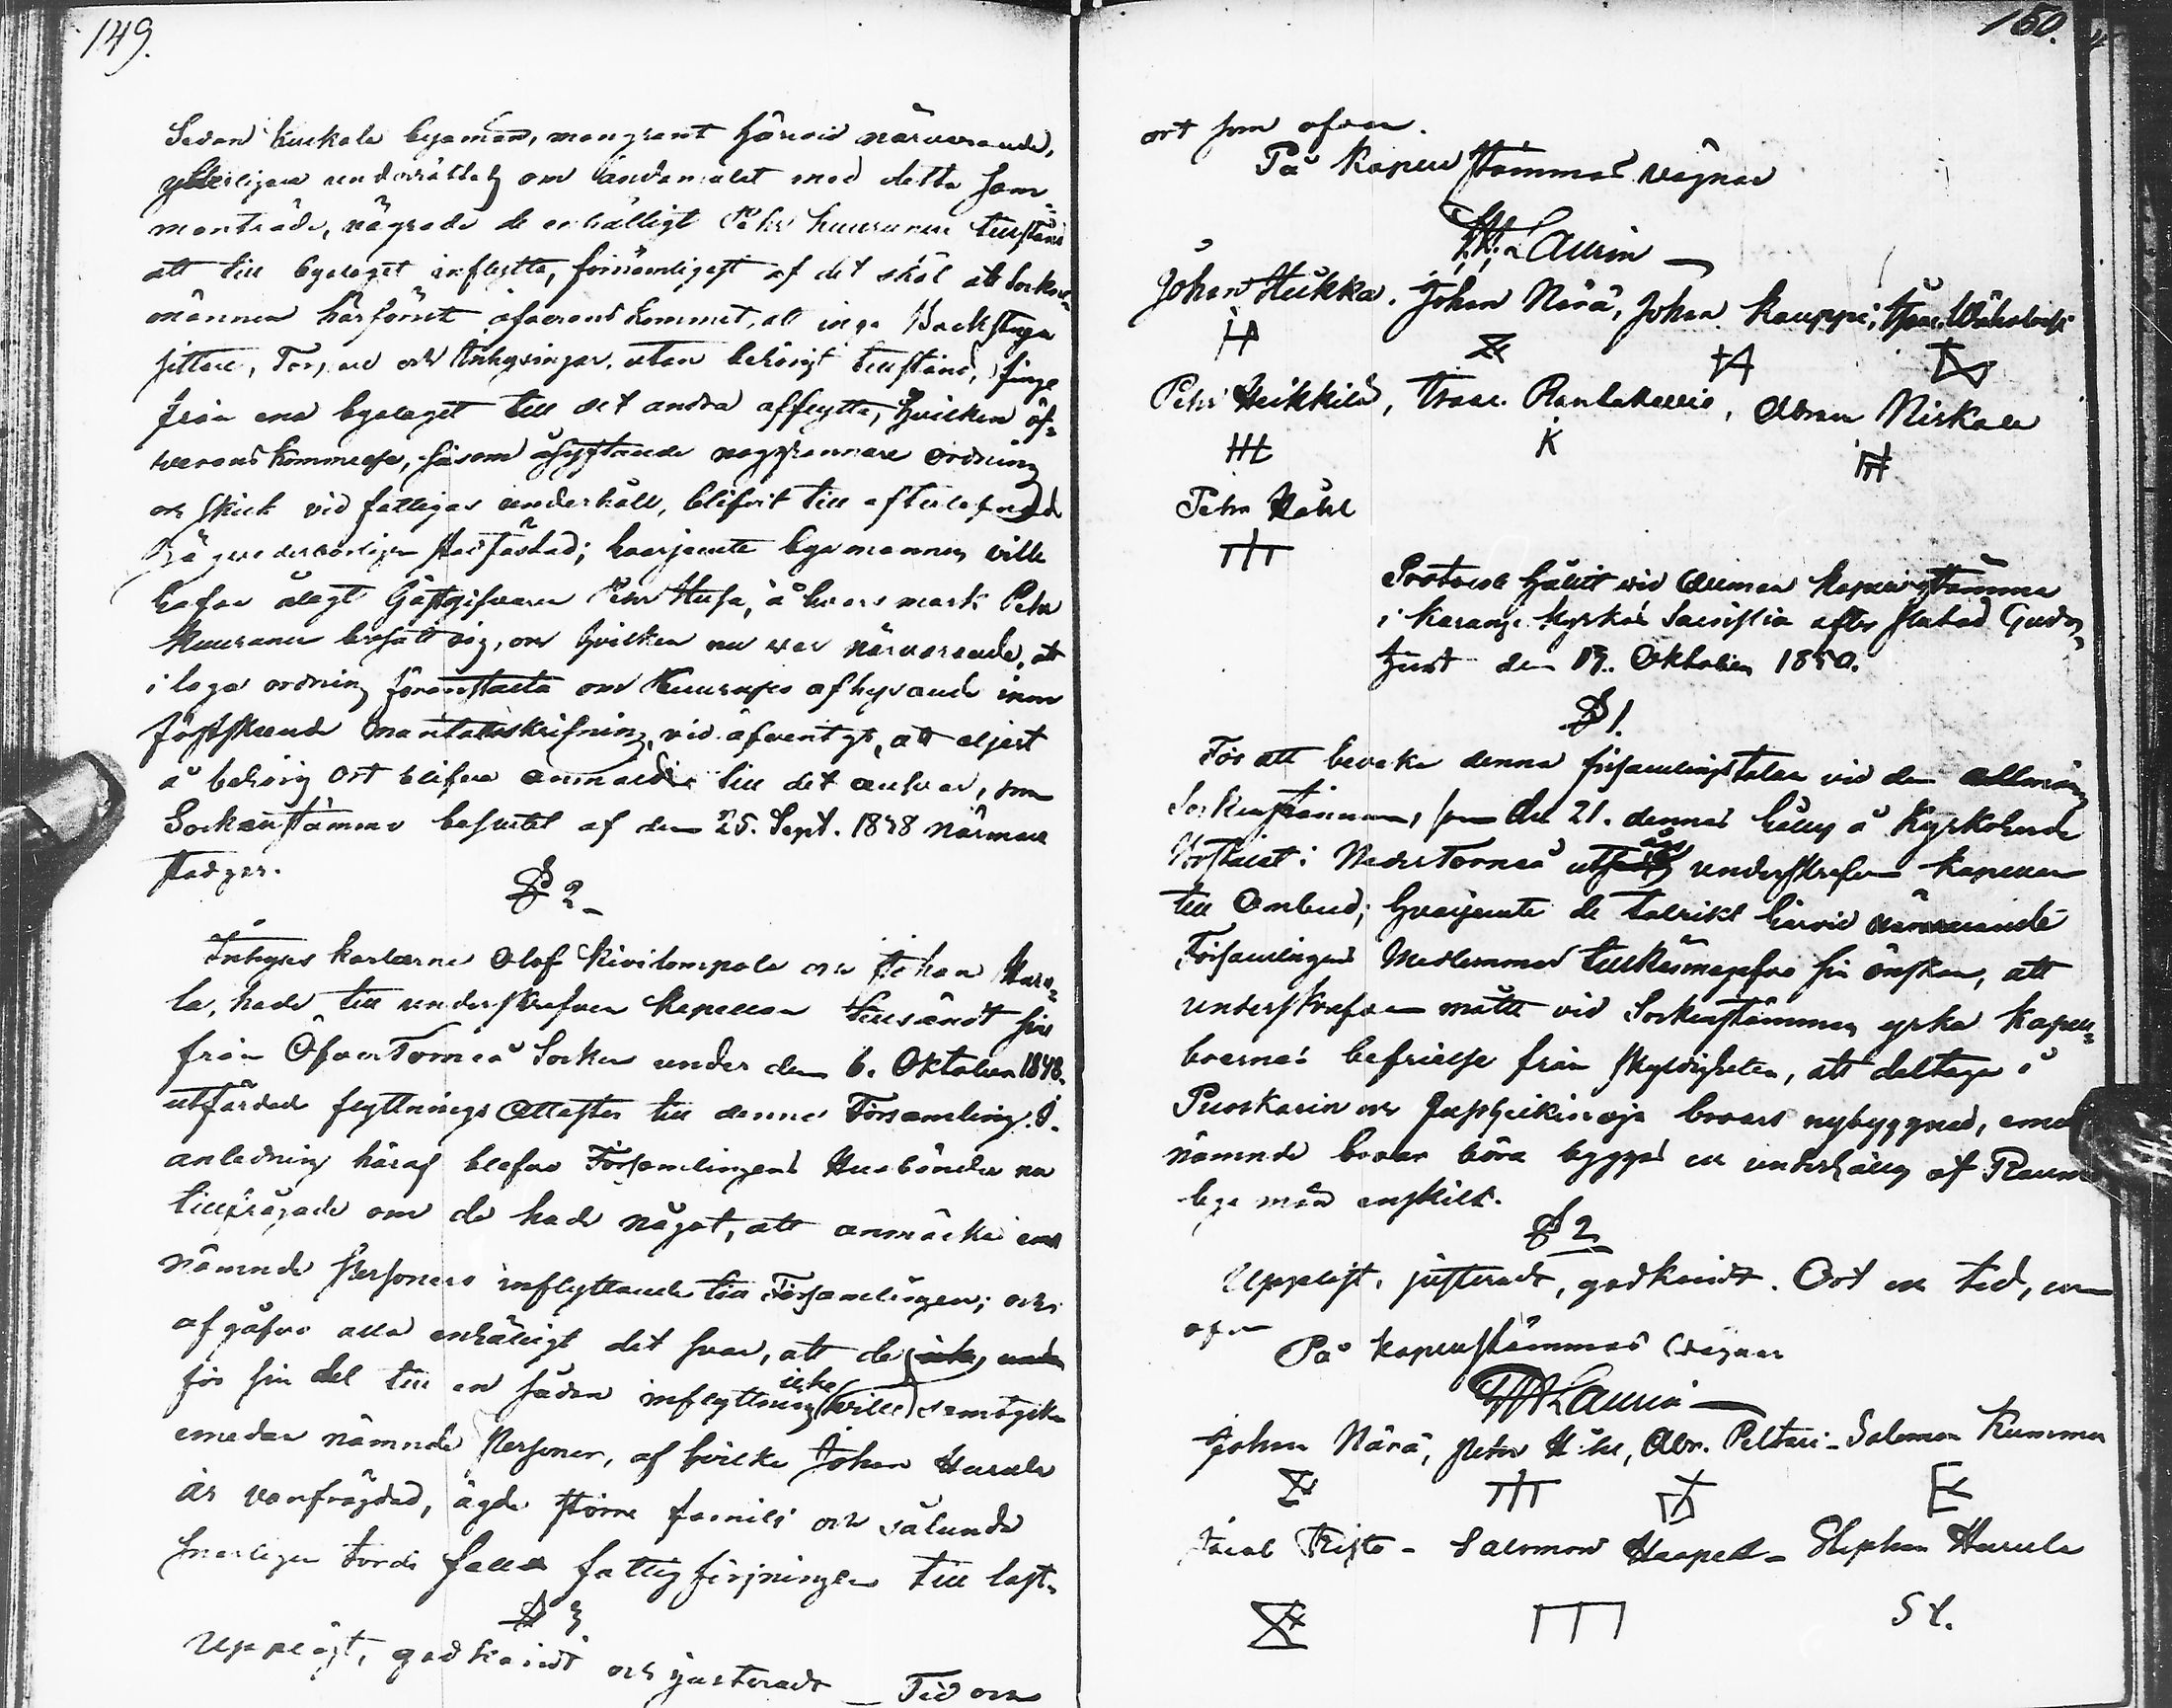 149.
Sedan Kuckala byamän, mangrant härvid närvarande,
ytterligare underrättats om ändamålet med detta sam-
manträde, vägrade de enhälligt Pehr Kuuranen tillstånd
att till byalaget inflytta, förnämligast af det skäl att Socken-
männen härförut öfverens kommit, att inga Backstugu
sittare, Torpare och Inhysingar, utan behörigt tillstånd, finge
från ena byalaget till det andra afflytta, hvilken öf-
verenskommelse, såsom åsyftande noggrannare ordning
och skick vid fattigas underhåll, blifvit till efterlefnad
vederbörligen stadfästad; hvarjemte byamännen ville
hafva ålagt Gästgifvaren Pehr Husa, å hvars mark Pehr
Kuuranen besatt sig, och hvilken nu var närvarande, att
i laga ordning föranstalta om Kuuranens afhysande inom
förstkommande Mantalsskrifning, vid äfventyr, att eljest
å behörig Ort blifva anmäld till det answar, som
Sockenstämmo beslutet af den 25. Sept. 1848 närmare
stadgar.
§ 2
Inhyses karlarne Olof Kivilompolo och Johan Hara-
la, hade till underskrefven Kapellan tillsändt sine
från ÖfverTorneå Socken under den 6. Oktober 1848.
utfärdade flyttnings Attester till denna Församling. I
anledning häraf blefvo Församlingens Husbönder nu
tillfrågade om de hade något, att anmärka emot
nämnde personers inflyttande till Församlingen; och
afgåfvo alla enhälligt det svar, att de icke
för sin del till en sådan inflyttning icke ville samtycka
emedan nämnde personer, af hvilke Johan Harala
är vanfrägdad, ägde större familj och sålunda
snarligen torde falla fattigförsörjningen till last.
§ 3
Uppläst, godkändt och justeradt _ Tid och
150.
ort som ofvan.
På Kapellstämmas vägnar
Laurin
Johan Hukka. Johan Närä, Johan Kauppi,
Pehr Heikkilä, Isac Rantakallio, Abram Niskala
K
Pehr Håhl
Protocoll hållit vid Allmän Kapellstämma
i Karungi Kyrkas Sacristia efter slutad Guds-
tjenst den 19. Oktober 1850.
§ 1.
För att bevaka denna församlings talan vid den allmänna
Sockenstämman, som den 21. dennes hålles å Kyrkoherde
Bostället i NederTorneå utsågs underskrefven Kapellan
till Ombud; hvarjemte de talrikt härvid närvarande
Församlingens Medlemmar tillkännagåfvo sin önskan, att
underskrefven måtte vid Sockenstämman yrka Kapell-
boernes befrielse från skyldigheten, att deltaga i
Puoskarin och broars nybyggnad, emedan
nämnde broar böra byggas och underhållas af Raumo
bya män enskilt.
§ 2
Uppläst, justeradt, godkändt. Ort och tid, som
ofvan
På Kapellstämmas vägnar
Laurin
Johan Närä, Pehr Håhl, Abr. Peltari - Salomon Kumman
Jacob Risto - Salomon Haapala - Stephan Harala
S H.